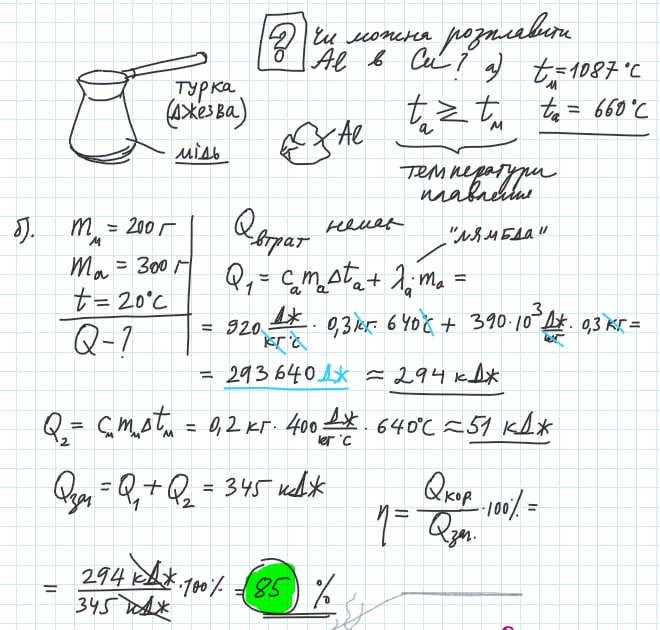 ?
Чи можна розплавити
Al в Cu? а) tм = 1087 °C
турка
(джезва)
мідь
Al
tа ≥ tм tа = 660 °C
температури
плавлення
б). mм = 200 г
mа = 300 г
t = 20°C
Q - ?
Qвтрат немає
"лямбда"
Q₁ = cа mа Δtа + λа · mа =
= 920 Дж/кг°C · 0,3 кг · 640°C + 390 · 10³ Дж/кг · 0,3 кг =
= 293 640 Дж ≈ 294 кДж
Q₂ = cм mм Δtм = 0,2 кг · 400 Дж/кг°C · 640°C ≈ 51 кДж
Qзаг = Q₁ + Q₂ = 345 кДж
η = Qкор/Qзаг. · 100% =
= 294 кДж/345 кДж · 100% = 85 %